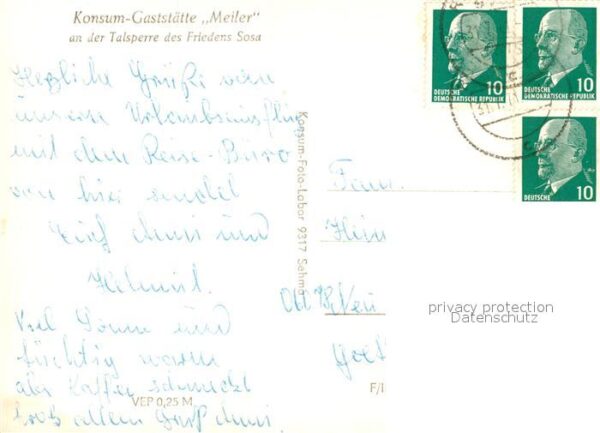 Konsum-Gaststätte „Meiler"
an der Talsperre des Friedens Sosa
Herzliche Grüße von
unsere Urlaubsausflug
mit dem Reise-Büro
von hier sendet
Euch Anni und
Helmut.
Viel Sonne und
tüchtig warm
aber Kaffee schmeckt
trotz allem Gruß Anni
VEP 0,25 M
Konsum-Foto-Labor 9317 Sehma
Fam.
Hein
F/I
10
DEUTSCHE
DEMOKRATISCHE REPUBLIK
10
DEUTSCHE
DEMOKRATISCHE REPUBLIK
DEUTSCHE
10
privacy protection
Datenschutz